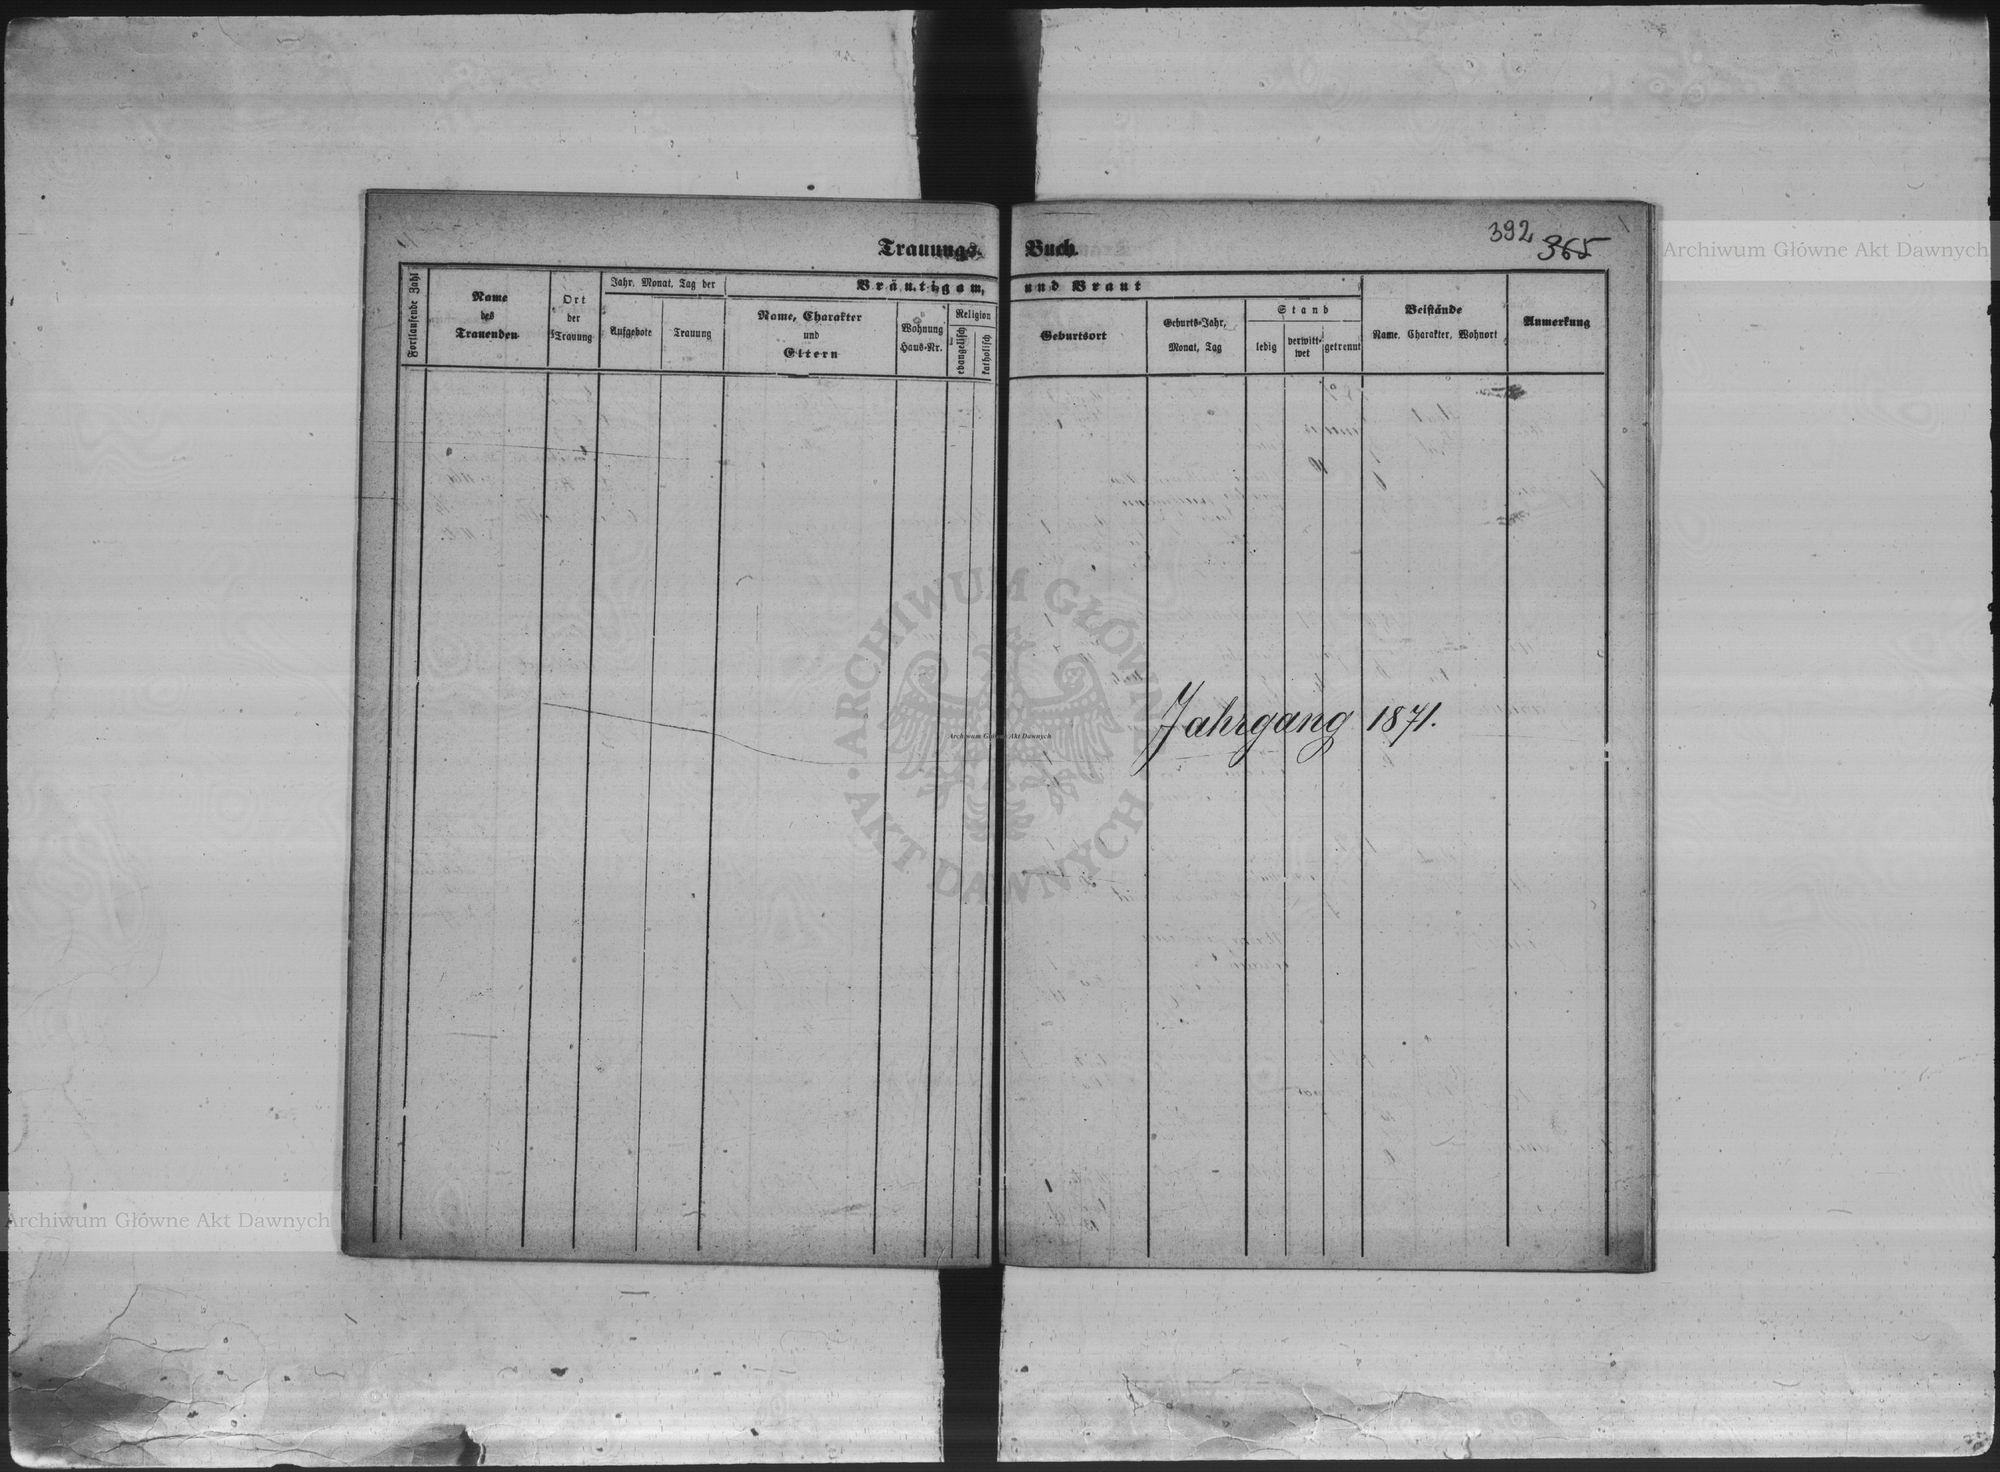 392 365
Trauungs- Buch
Fortlaufende Zahl
Name
des
Trauenden
Ort
der
Trauung
Jahr, Monat, Tag der
Aufgebote
Trauung
Bräutigam, und Braut
Name, Charakter
und
Eltern
Wohnung
Haus-Nr.
Religion
evangelisch
katholisch
Geburtsort
Geburts-Jahr,
Monat, Tag
Stand
ledig
verwitt-
wet
getrennt
Beistände
Name, Charakter, Wohnort
Anmerkung
Jahrgang 1871.
Archiwum Główne Akt Dawnych
Archiwum Główne Akt Dawnych
Archiwum Główne Akt Dawnych
ARCHIWUM GŁÓWNE • AKT DAWNYCH